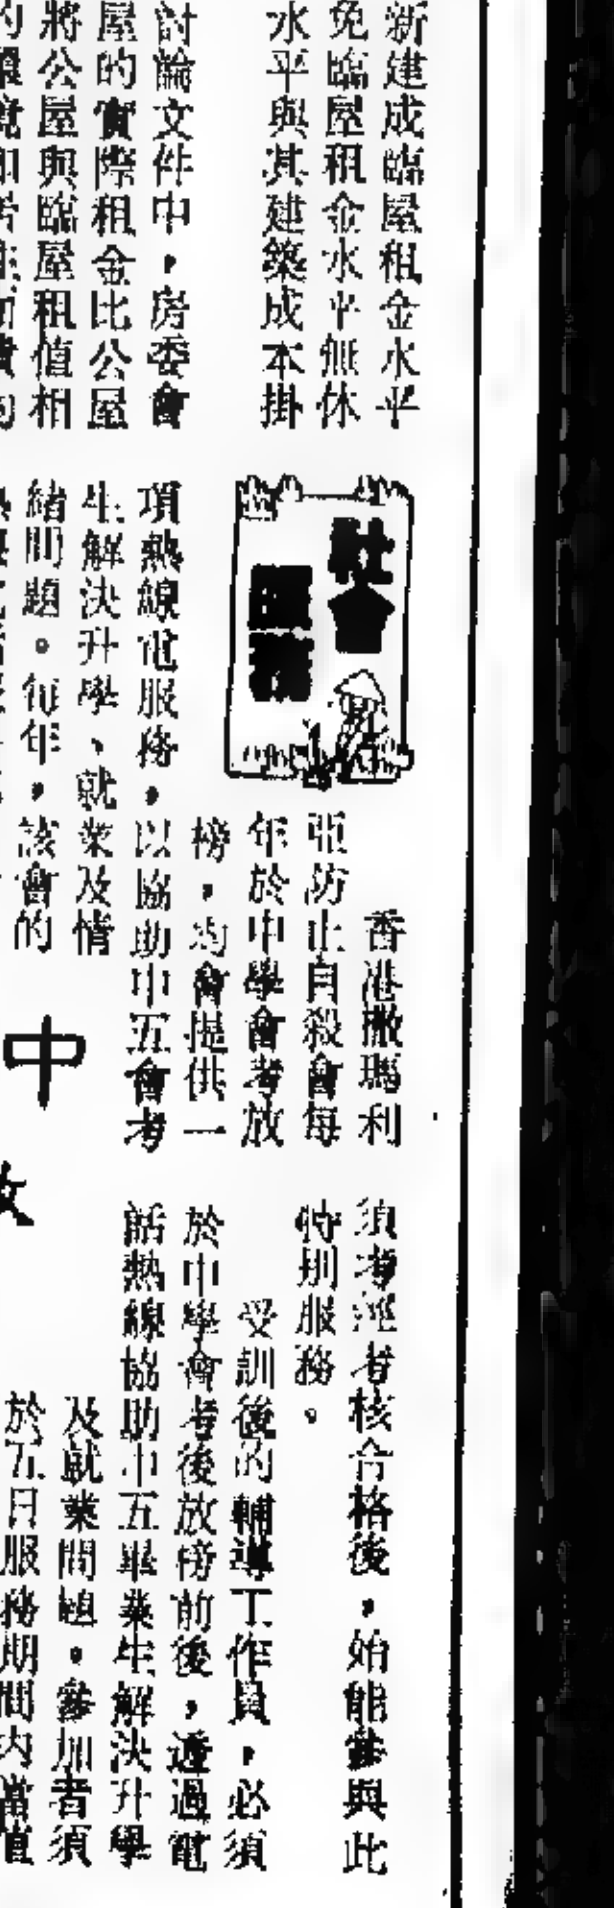 新建成臨屋租金水平
免臨屋租金水平無休
水平與其建築成本掛
討論文件中，房委會
屋的實際租金比公屋
將公屋與臨屋租值相
社會
服務
香港撒瑪利
亞防止自殺會每
年於中學會考放
榜，均會提供一
項熱線電服務，以協助中五會考
生解決升學、就業及情
緒問題。每年，該會的
中
須考經考核合格後，始能參與此
特別服務。
受訓後的輔導工作員，必須
於中學會考後放榜前後，透過電
話熱線協助中五畢業生解決升學
及就業問題。參加者須
於五日服務期間內當值